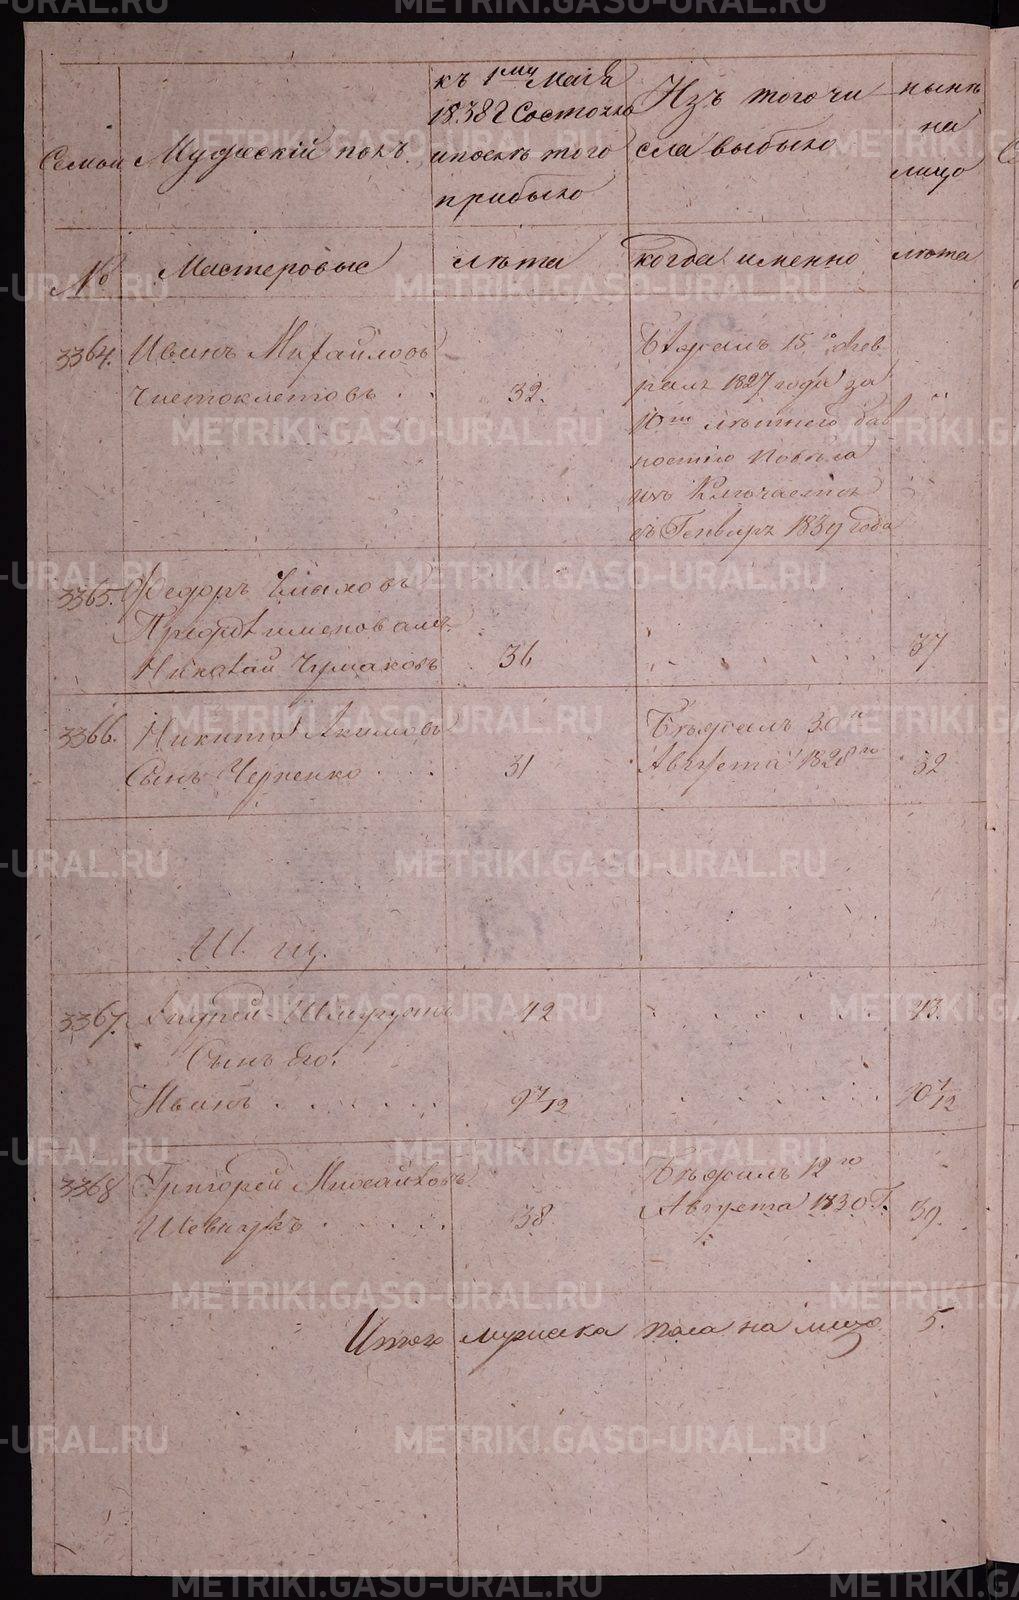 Семьи
Мужескій полъ
къ 1му Маія
1838 г Состояло
и послѣ того
прибыло
Изъ того чи
сла выбыло
нынѣ
на
лицо
№
Мастеровые
лѣта
когда именно
лѣта
3364.
Иванъ Михайловъ
Чистоклетовъ . .
32.
Бѣжалъ 15го Фев
ралѣ 1827 года за
10ти лѣтнею дав
ностію
изъ
въ Генварѣ 1839 года
3365.
Федоръ Чмаховъ
Николай Чумаковъ
36
37
3366.
Никита Акимовъ
Сынъ Черненко . . .
31
Бѣжалъ 30го
Августа 1828го
32
Ш. щ.
3367.
Андрей
42
43.
Сынъ Его.
Иванъ . . . . . .
9 7/12
10 7/12
3368
Григорей Михайловъ
Шевчукъ . . . . .
38
Бѣжалъ 12го
Августа 1830 Г.
39.
Итого мужеска пола на лицо 5.
METRIKI.GASO-URAL.RU